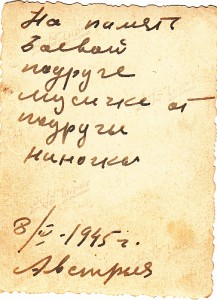 На память
боевой
подруге
Мусичке от
подруги
Ниночки
8/V-1945г.
Австрия